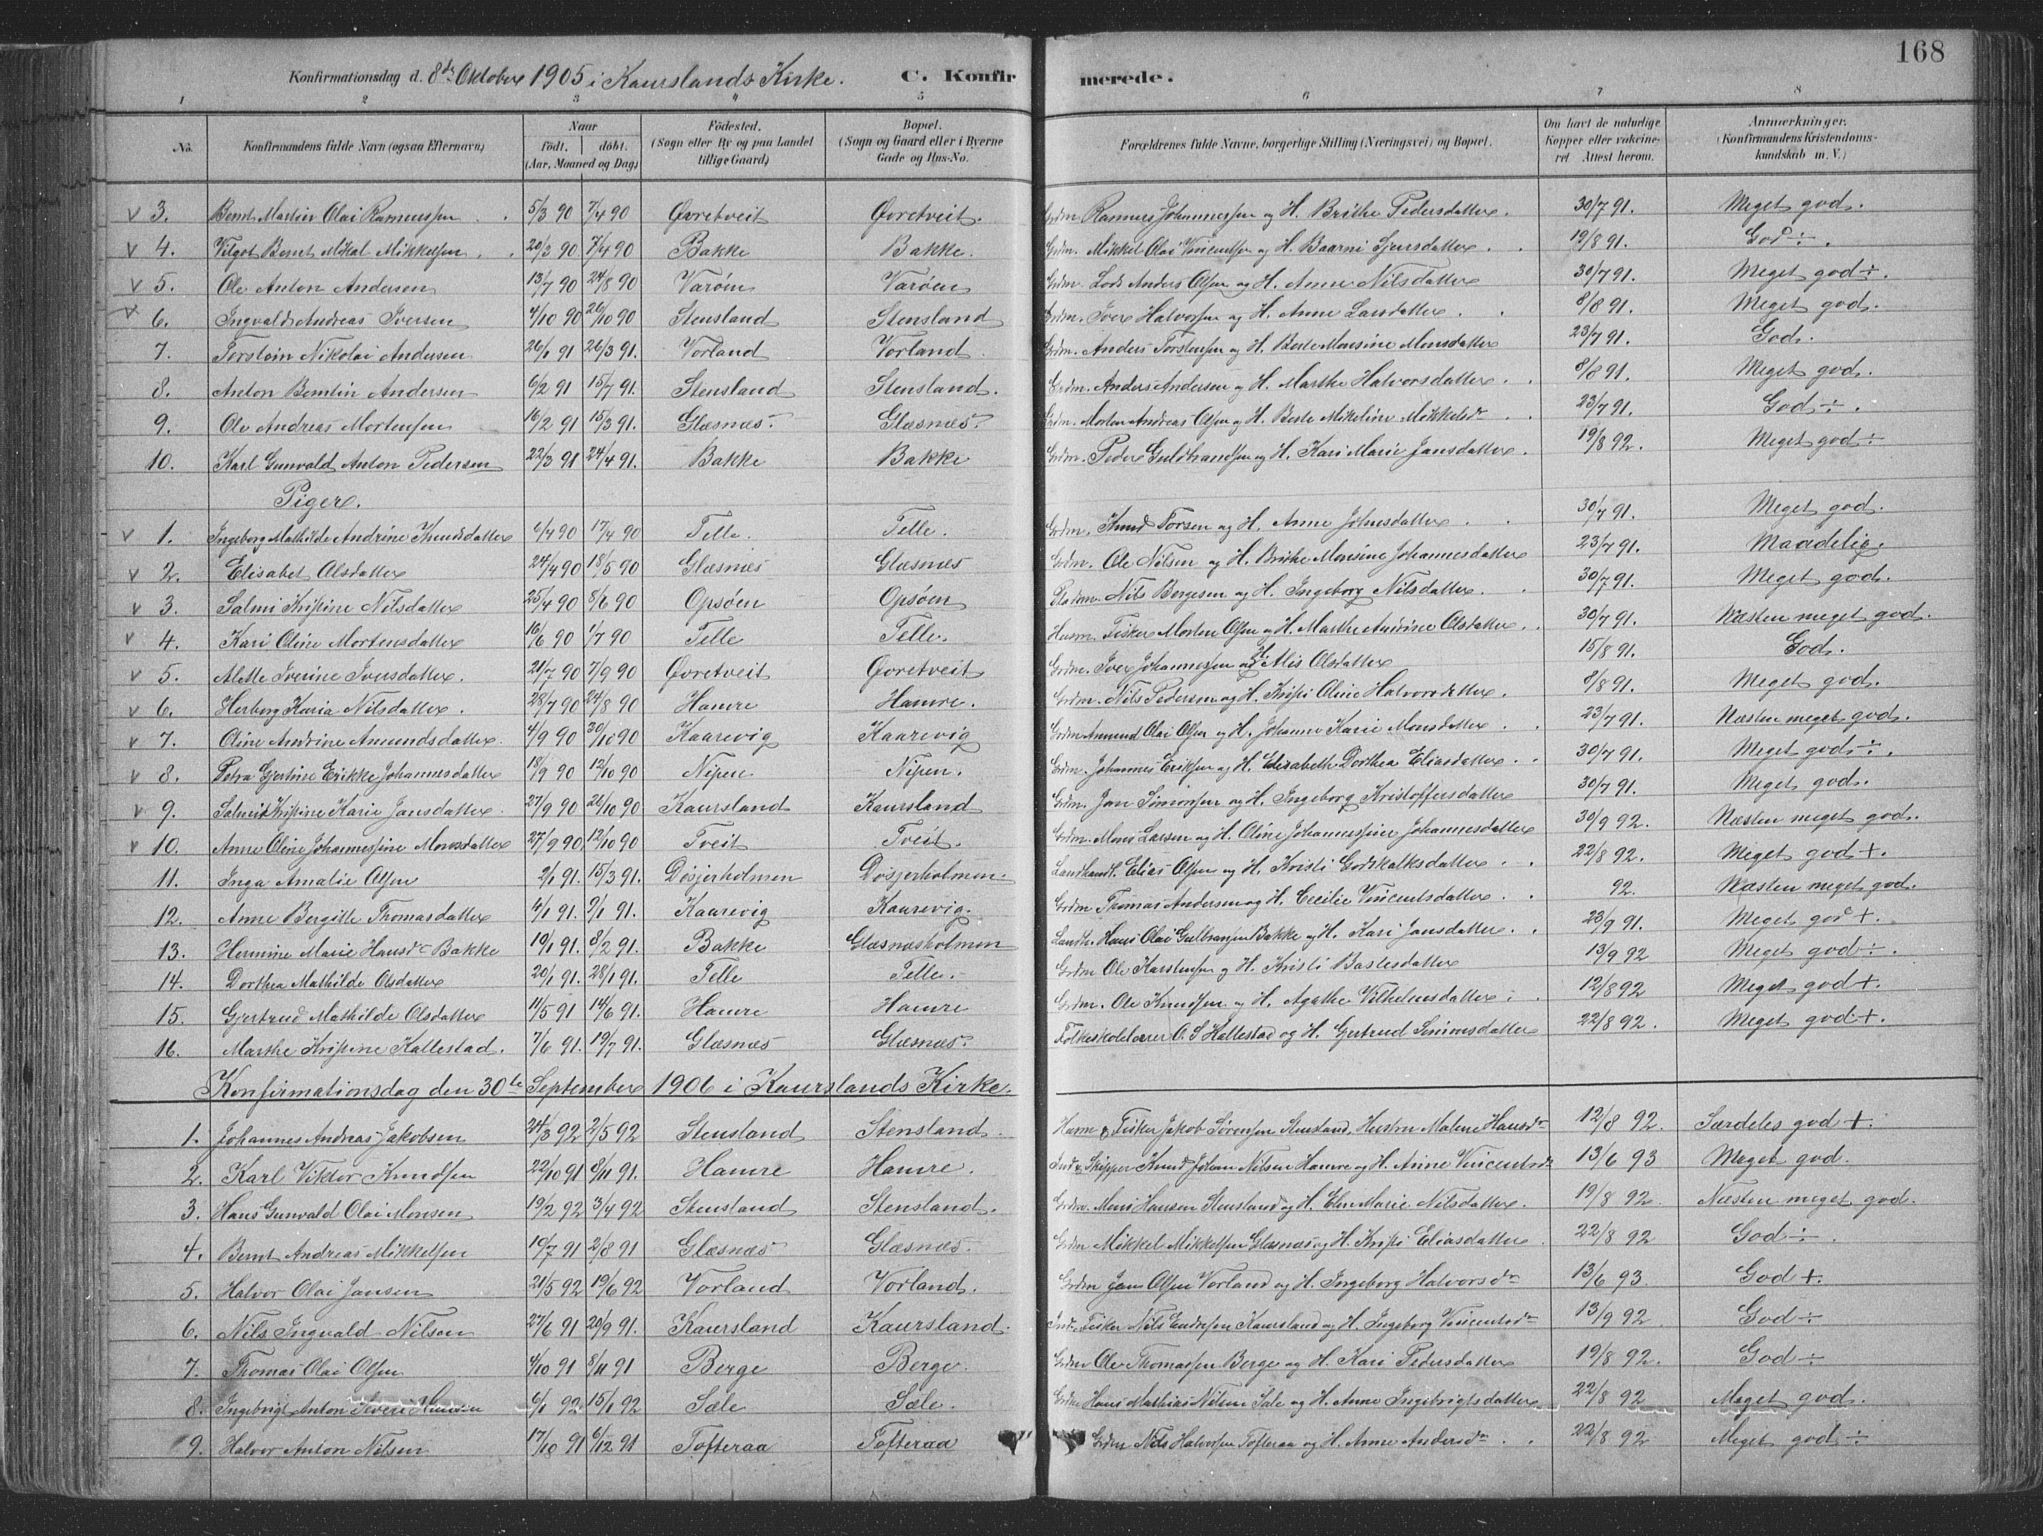 168
Konfirmationsdag d. 8de Oktober 1905 i Kaurslands Kirke. C. Konfirmerede.
1 2 3 4 5 6 7 8
No. Konfirmandens fulde Navn (ogsaa Efternavn) Naar födt. döbt. (Aar, Maaned og Dag) Födested. (Sogn eller By og paa Landet tillige Gaard) Bopæl. (Sogn og Gaard eller i Byerne Gade og Hus-No. Forældrenes fulde Navne, borgerlige Stilling (Næringsvei) og Bopæl. Om havt de naturlige Kopper eller vakcineret Attest herom. Anmerkninger. (Konfirmandens Kristendomskundskab m. V.)
v 3. Bernt Martin Olai Rasmussen 5/3 90 7/4 90 Øvretveit Øvretveit. Grdm. Rasmus Johannessen og H. Brithe Pedersdatter 30/7 91. Meget god.
v 4. Vilgot Bernt Mikal Mikkelsen 20/3 90 7/4 90 Bakke Bakke. Grdm. Mikkel Olai Vincentsen og H. Baarni Sjursdatter 19/8 91. God ÷.
v 5. Ole Anton Andersen 13/7 90 24/8 90 Varöen Varöen Grdm. Lods Anders Olsen og H. Anne Nilsdatter 30/7 91. Meget god ÷.
v 6. Ingvald Andreas Iversen 4/10 90 26/10 90 Stensland Stensland Grdm. Iver Halvorsen og H. Anne Larsdatter 8/8 91. Meget god.
7. Torstein Nikolai Andersen 26/1 91 26/3 91. Vorland Vorland Grdm. Anders Torstensen og H. Berte Monsine Monsdatter 23/7 91. God.
8. Anton Berntin Andersen 6/2 91 15/7 91. Stensland Stensland. Grdm. Anders Andersen og H. Marthe Halvorsdatter 8/8 91. Meget god.
9. Ole Andreas Mortensen 16/2 91 15/3 91. Glæsnæs Glæsnæs. Grdm. Morten Andreas Olsen og H. Berte Mikeline Mikkelsdr 23/7 91. God ÷.
10. Karl Gunvald Anton Pedersen 22/3 91 24/4 91. Bakke Bakke Grdm. Peder Guldbrandsen og H. Kari Marie Jansdatter. 19/8 92. Meget god ÷
Piger.
v 1. Ingeborg Mathilde Andrine Knudsdatter 6/4 90 17/4 90 Telle. Telle. Grdm. Knud Torsen og H. Anne Johnsdatter 30/7 91. Meget god.
v 2. Elisabet Olsdatter 24/4 90 18/5 90 Glæsnæs Glæsnæs Grdm. Ole Nilsen og H. Brithe Monsine Johannesdatter 23/7 91. Maadelig.
v 3. Salmi Kristine Nilsdatter 25/4 90 8/6 90 Opsöen Opsöen Nils Bergesen og H. Ingeborg Nilsdatter. 30/7 91. Meget god.
v 4. Kari Oline Mortensdatter 16/6 90 1/7 90 Telle Telle. Husm. Fisker Morten Olsen og H. Marthe Andrine Olsdatter 30/7 91. Næsten meget god.
v 5. Alette Iverine Iversdatter. 21/7 90 7/9 90 Øvretveit Øvretveit Grdm. Iver Johannessen og H. Alis Olsdatter 15/8 91. God.
v 6. Herborg Karia Nilsdatter. 28/7 90 24/8 90 Hamre Hamre. Grdm. Nils Pedersen og H. Kristi Oline Halvorsdatter. 8/8 91. Meget god.
v 7. Oline Andrine Amundsdatter. 4/9 90 30/10 90 Kaarevig Kaarevig Grdm Amund Olai Olsen og H. Johanne Karie Monsdatter 23/7 91. Næsten meget god.
v 8. Petra Gjertine Erikke Johannesdatter 18/9 90 12/10 90 Nipen. Nipen. Grdm. Johannes Eriksen og H. Elisabeth Dorthea Eliasdatter 30/7 91. Meget god ÷.
v 9. Kristine Karie Jansdatter. 27/9 90 26/10 90 Kaursland Kaursland Grdm. Jan Simonsen og H. Ingeborg Kristoffersdatter 30/7 91. Meget god.
v 10. Anne Oline Johannessine Monsdatter 27/9 90. 12/10 90 Tveit Tveit. Grdm. Mons Larsen og H. Oline Johannessine Johannesdatter 30/9 92. Næsten meget god.
11. Inga Amalie Olsen 2/1 91. 15/3 91. Døsjerholmen Døsjerholmen. Landhandl. Elias Olsen og H. Kristi Godskalksdatter 22/8 92. Meget god +.
12. Anne Bergitte Thomasdatter 4/1 91. 9/1 91. Kaarevig Kaarevig. Grdm Thomas Andersen og H. Cecilie Vincentsdatter. 92. Næsten meget god.
13. Hermine Marie Hansdr Bakke 19/1 91. 8/2 91. Bakke Glæsnæsholmen Landh. Hans Olai Gulbransen Bakke og H. Kari Jansdatter. 23/9 91. Meget god +
14. Dorthea Mathilde Olsdatter 20/1 91. 28/1 91. Telle Telle. Grdm Ole Karstensen og H. Kristi Bastesdatter 13/9 92 Meget god ÷.
15. Gjertrud Mathilde Olsdatter 11/5 91 14/6 91. Hamre Hamre Grdm. Ole Knudsen og H. Agathe Vilhelmsdatter 12/8 92 Meget god +.
16. Marthe Kristine Hallestad. 7/6 91. 19/7 91. Glæsnæs Glæsnæs. Folkeskolelærer O. S Hallestad og H. Gertrud Simonsdatter 22/8 92. Meget god +.
Konfirmationsdag den 30te September 1906 i Kaurslands Kirke.
1. Johannes Andreas Jakobsen 24/3 92 2/5 92 Stensland Stensland. Husm & Fisker Jakob Sörensen Stensland, Hustru Malene Hansdr 12/8 92. Særdeles god +.
2. Karl Viktor Knudsen 22/10 91 8/11 91. Hamre Hamre. Ind. & Skipper Knud Johan Nilsen Hamre og H. Anne Vincentsdr 13/6 93 Meget god.
3. Hans Gunvald Olai Monsen 19/2 92 3/4 92 Stensland Stensland. Grdm. Mons Hansen Stensland og H. Eli Marie Nilsdatter. 19/8 92. Næsten meget god.
4. Bernt Andreas Mikkelsen 19/7 91 2/8 91 Glæsnæs Glæsnæs. Grdm Mikkel Mikkelsen Glæsnæs og H. Kristi Eliasdatter. 22/8 92 God ÷.
5. Halvor Olai Jansen 21/5 92 19/6 92 Vorland Vorland. Grdm Jan Olsen Vorland og H. Ingeborg Halvorsdr 13/6 93 God +.
6. Nils Ingvald Nilsen 27/6 91 20/9 91. Kaursland Kaursland. Ind. Fisker Nils Endresen Kaursland og H. Ingeborg Vincentsdr 13/9 92 God ÷
7. Thomas Olai Olsen 4/10 91 8/11 91 Berge Berge. Grdm Ole Thomassen Berge og H. Kari Pedersdatter 19/8 92. God ÷
8. Ingebrigt Anton Severi Hansen 6/1 92 15/1 92 Sæle Sæle. Grdm Hans Mathias Nilsen Sæle og H. Anne Ingebrigtsdatter 22/8 92 Meget god.
9. Halvor Anton Nilsen 17/10 91 6/12 91 Tofteraa Tofteraa Grdm Nils Halvorsen Tofteraa og H. Anne Andersdr 22/8 92. Meget god ÷